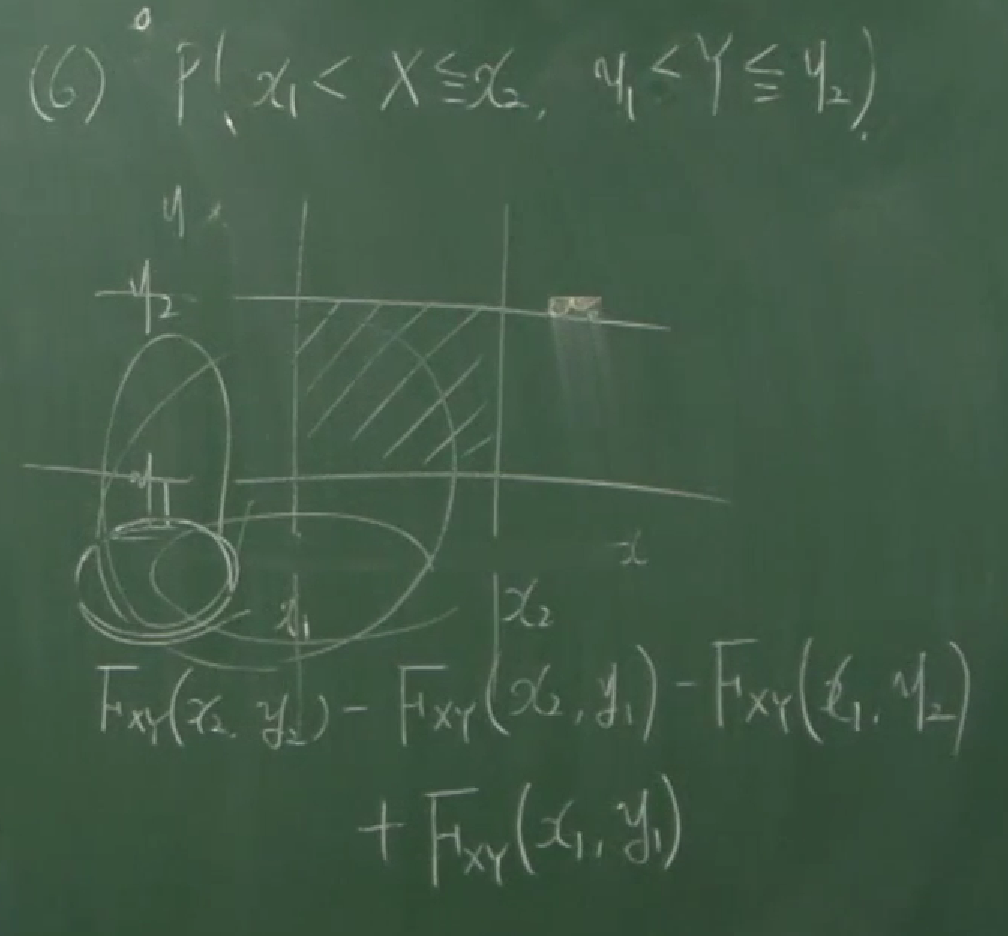 (6) P(x₁ < X ≦ x₂, y₁ < Y ≦ y₂).
y
y₂
y₁
x
x₁ x₂
F_XY(x₂, y₂) - F_XY(x₂, y₁) - F_XY(x₁, y₂)
+ F_XY(x₁, y₁)